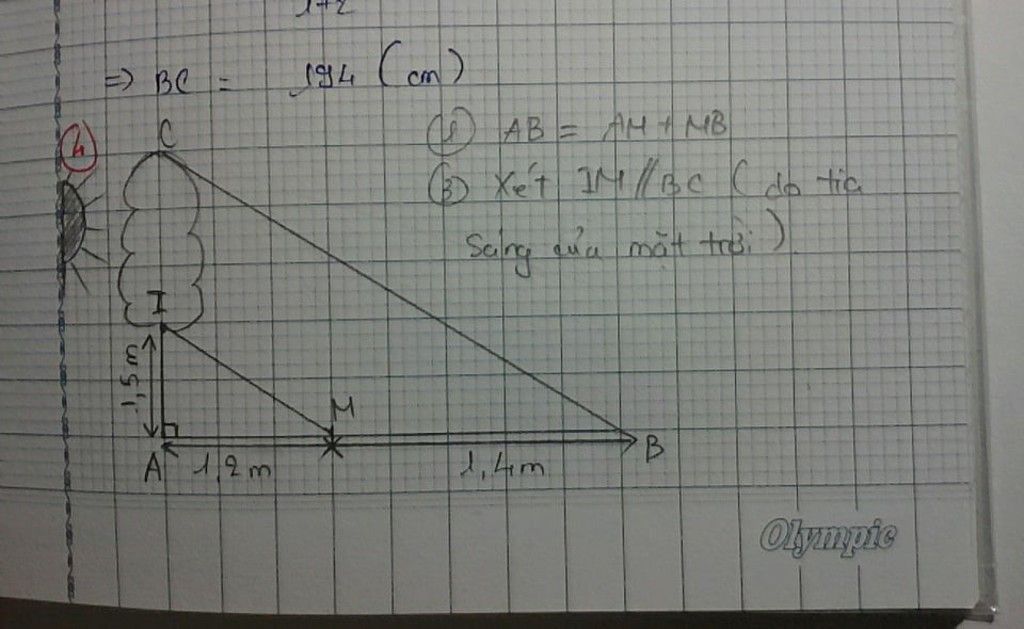 1+2
=> BC = 194 (cm)
4
C
① AB = AM + MB
③ Xét IM // BC ( do tia
sáng của mặt trời )
I
1,5m
M
A 1,2 m 1,4m B
Olympic